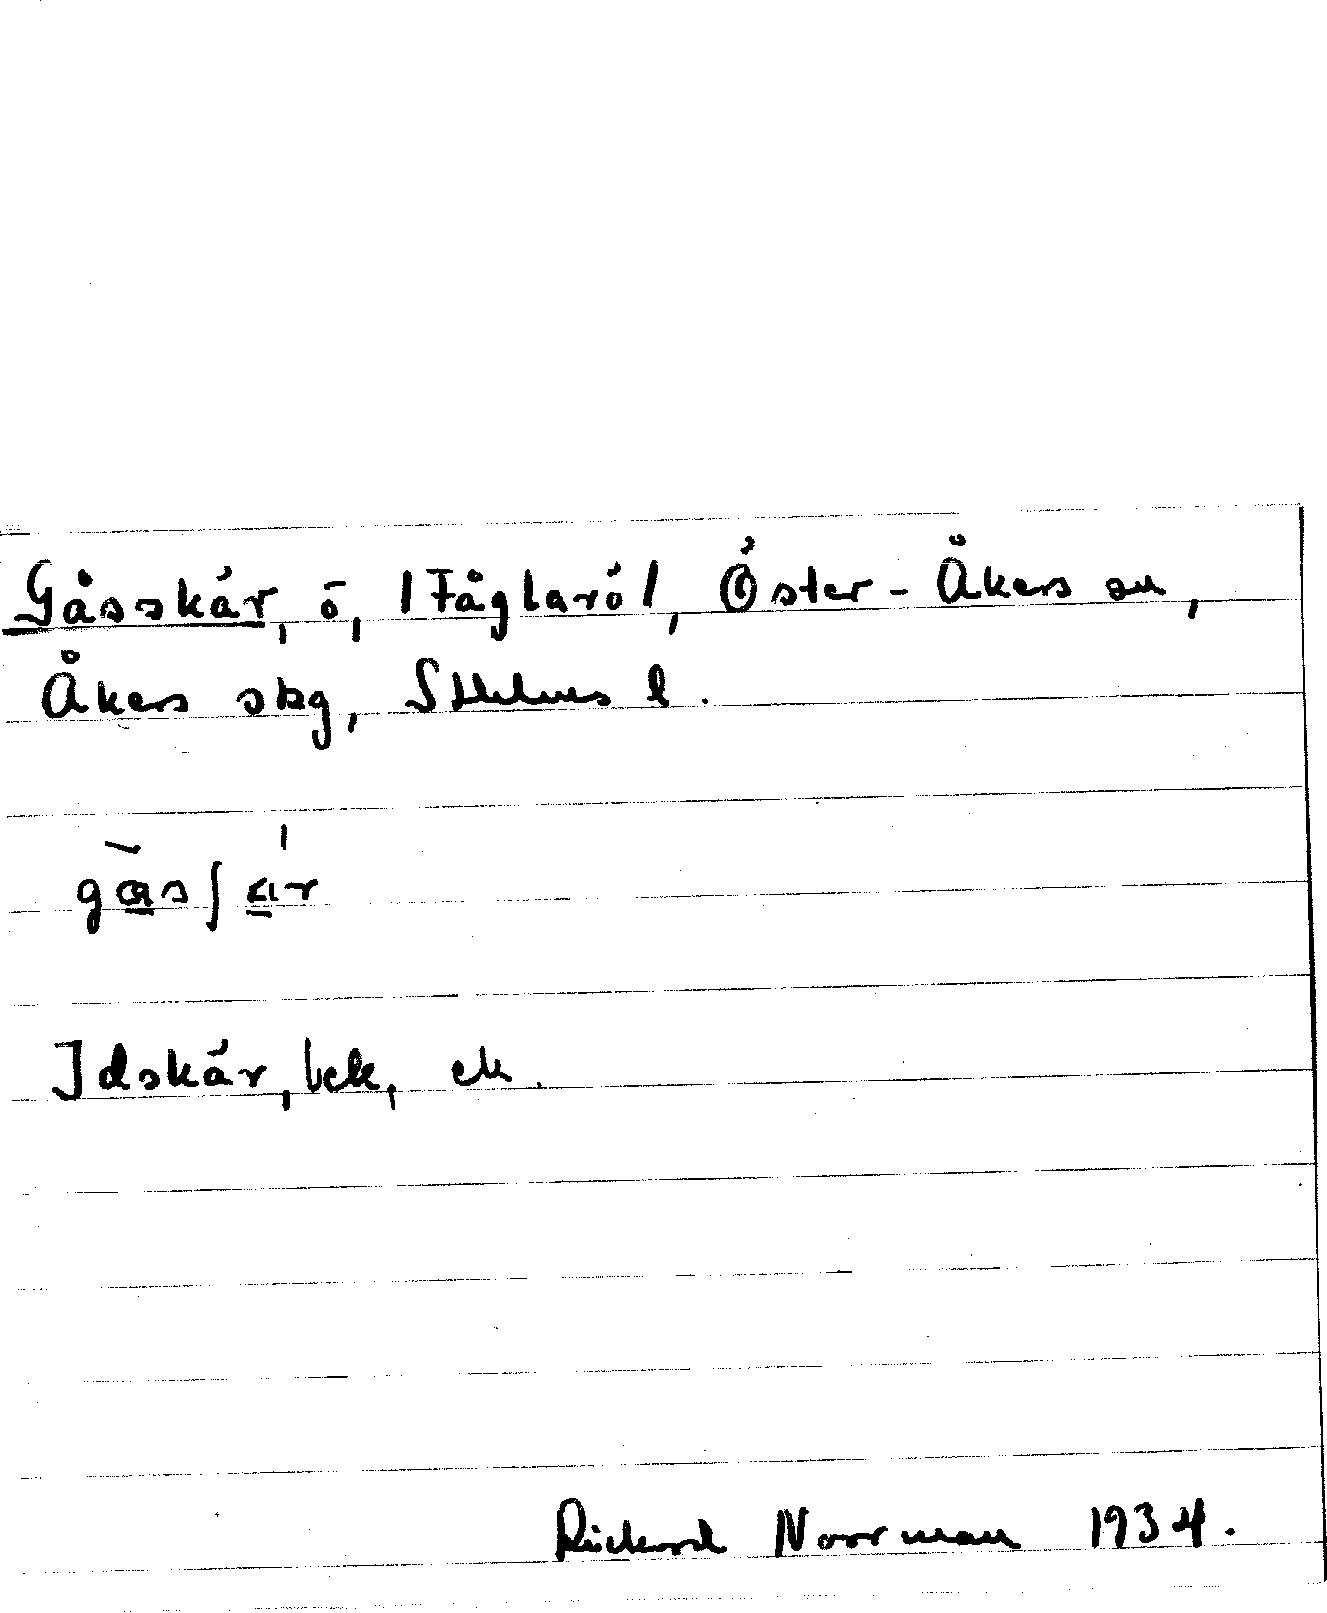 Gåsskär, ö, /Fåglarö/, Öster-Åkers sn,
Åkers skg, Sthlms l.
Idskär, bek, ek.
Rickard Norrman 1934.